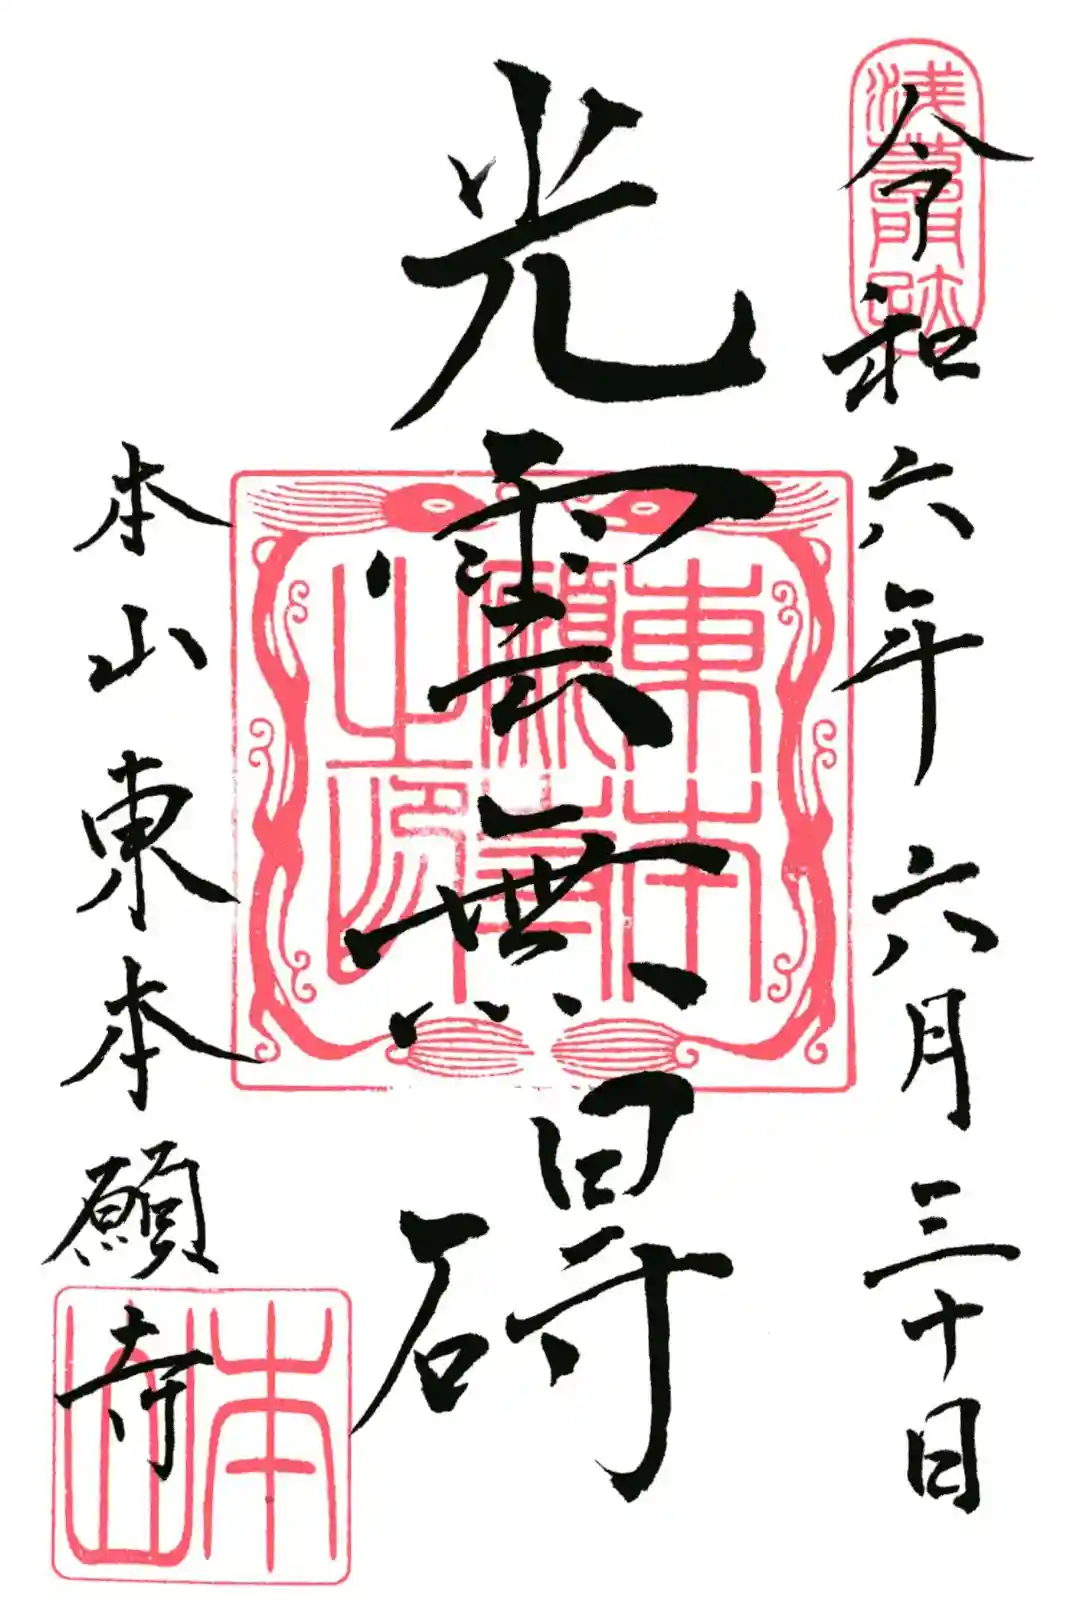 淺草門跡
令和六年六月三十日
光雲無碍
東本
願寺
之印
本山東本願寺
本山